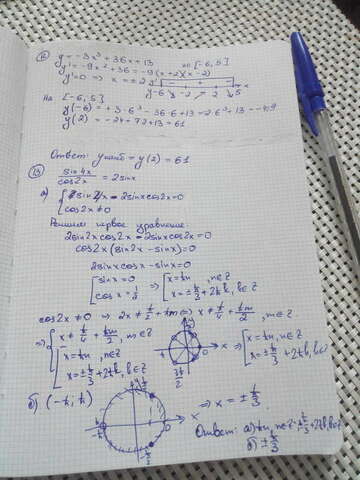 12 y = -3x³ + 36x + 13 на [-6; 5]
y' = -9x² + 36 = -9(x+2)(x-2)
y' = 0 ⇒ x = ±2
y' - + -
y -6 ↘ -2 ↗ 2 ↘ 5
На [-6; 5]
y(-6) = +3·6³ - 36·6 + 13 =
y(2) = -24 + 72 + 13 = 61
Ответ: yнаиб = y(2) = 61
13 sin4x / cos2x = 2sinx
а) { sin4x - 2sinxcos2x = 0
cos2x ≠ 0
Решим первое уравнение:
2sin2xcos2x - 2sinxcos2x = 0
cos2x(sin2x - sinx) = 0
2sinxcosx - sinx = 0
[ sinx = 0 ⇒ [ x = πn, n∈Z
cosx = 1/2 x = ±π/3 + 2πk, k∈Z
cos2x ≠ 0 ⇒ 2x ≠ π/2 + πm ⇒ x ≠ π/4 + πm/2
⇒ { x ≠ π/4 + πm/2, m∈Z
[ x = πn, n∈Z
x = ±π/3 + 2πk, k∈Z
y
π 0 x
3π/2
⇒ [ x = πn, n∈Z
x = ±π/3 + 2πk, k∈Z
б) (-π; π)
y
x
-π/3
⇒ x = ±π/3
Ответ: а) πn, n∈Z; ±π/3 + 2πk, k∈Z
б) ±π/3